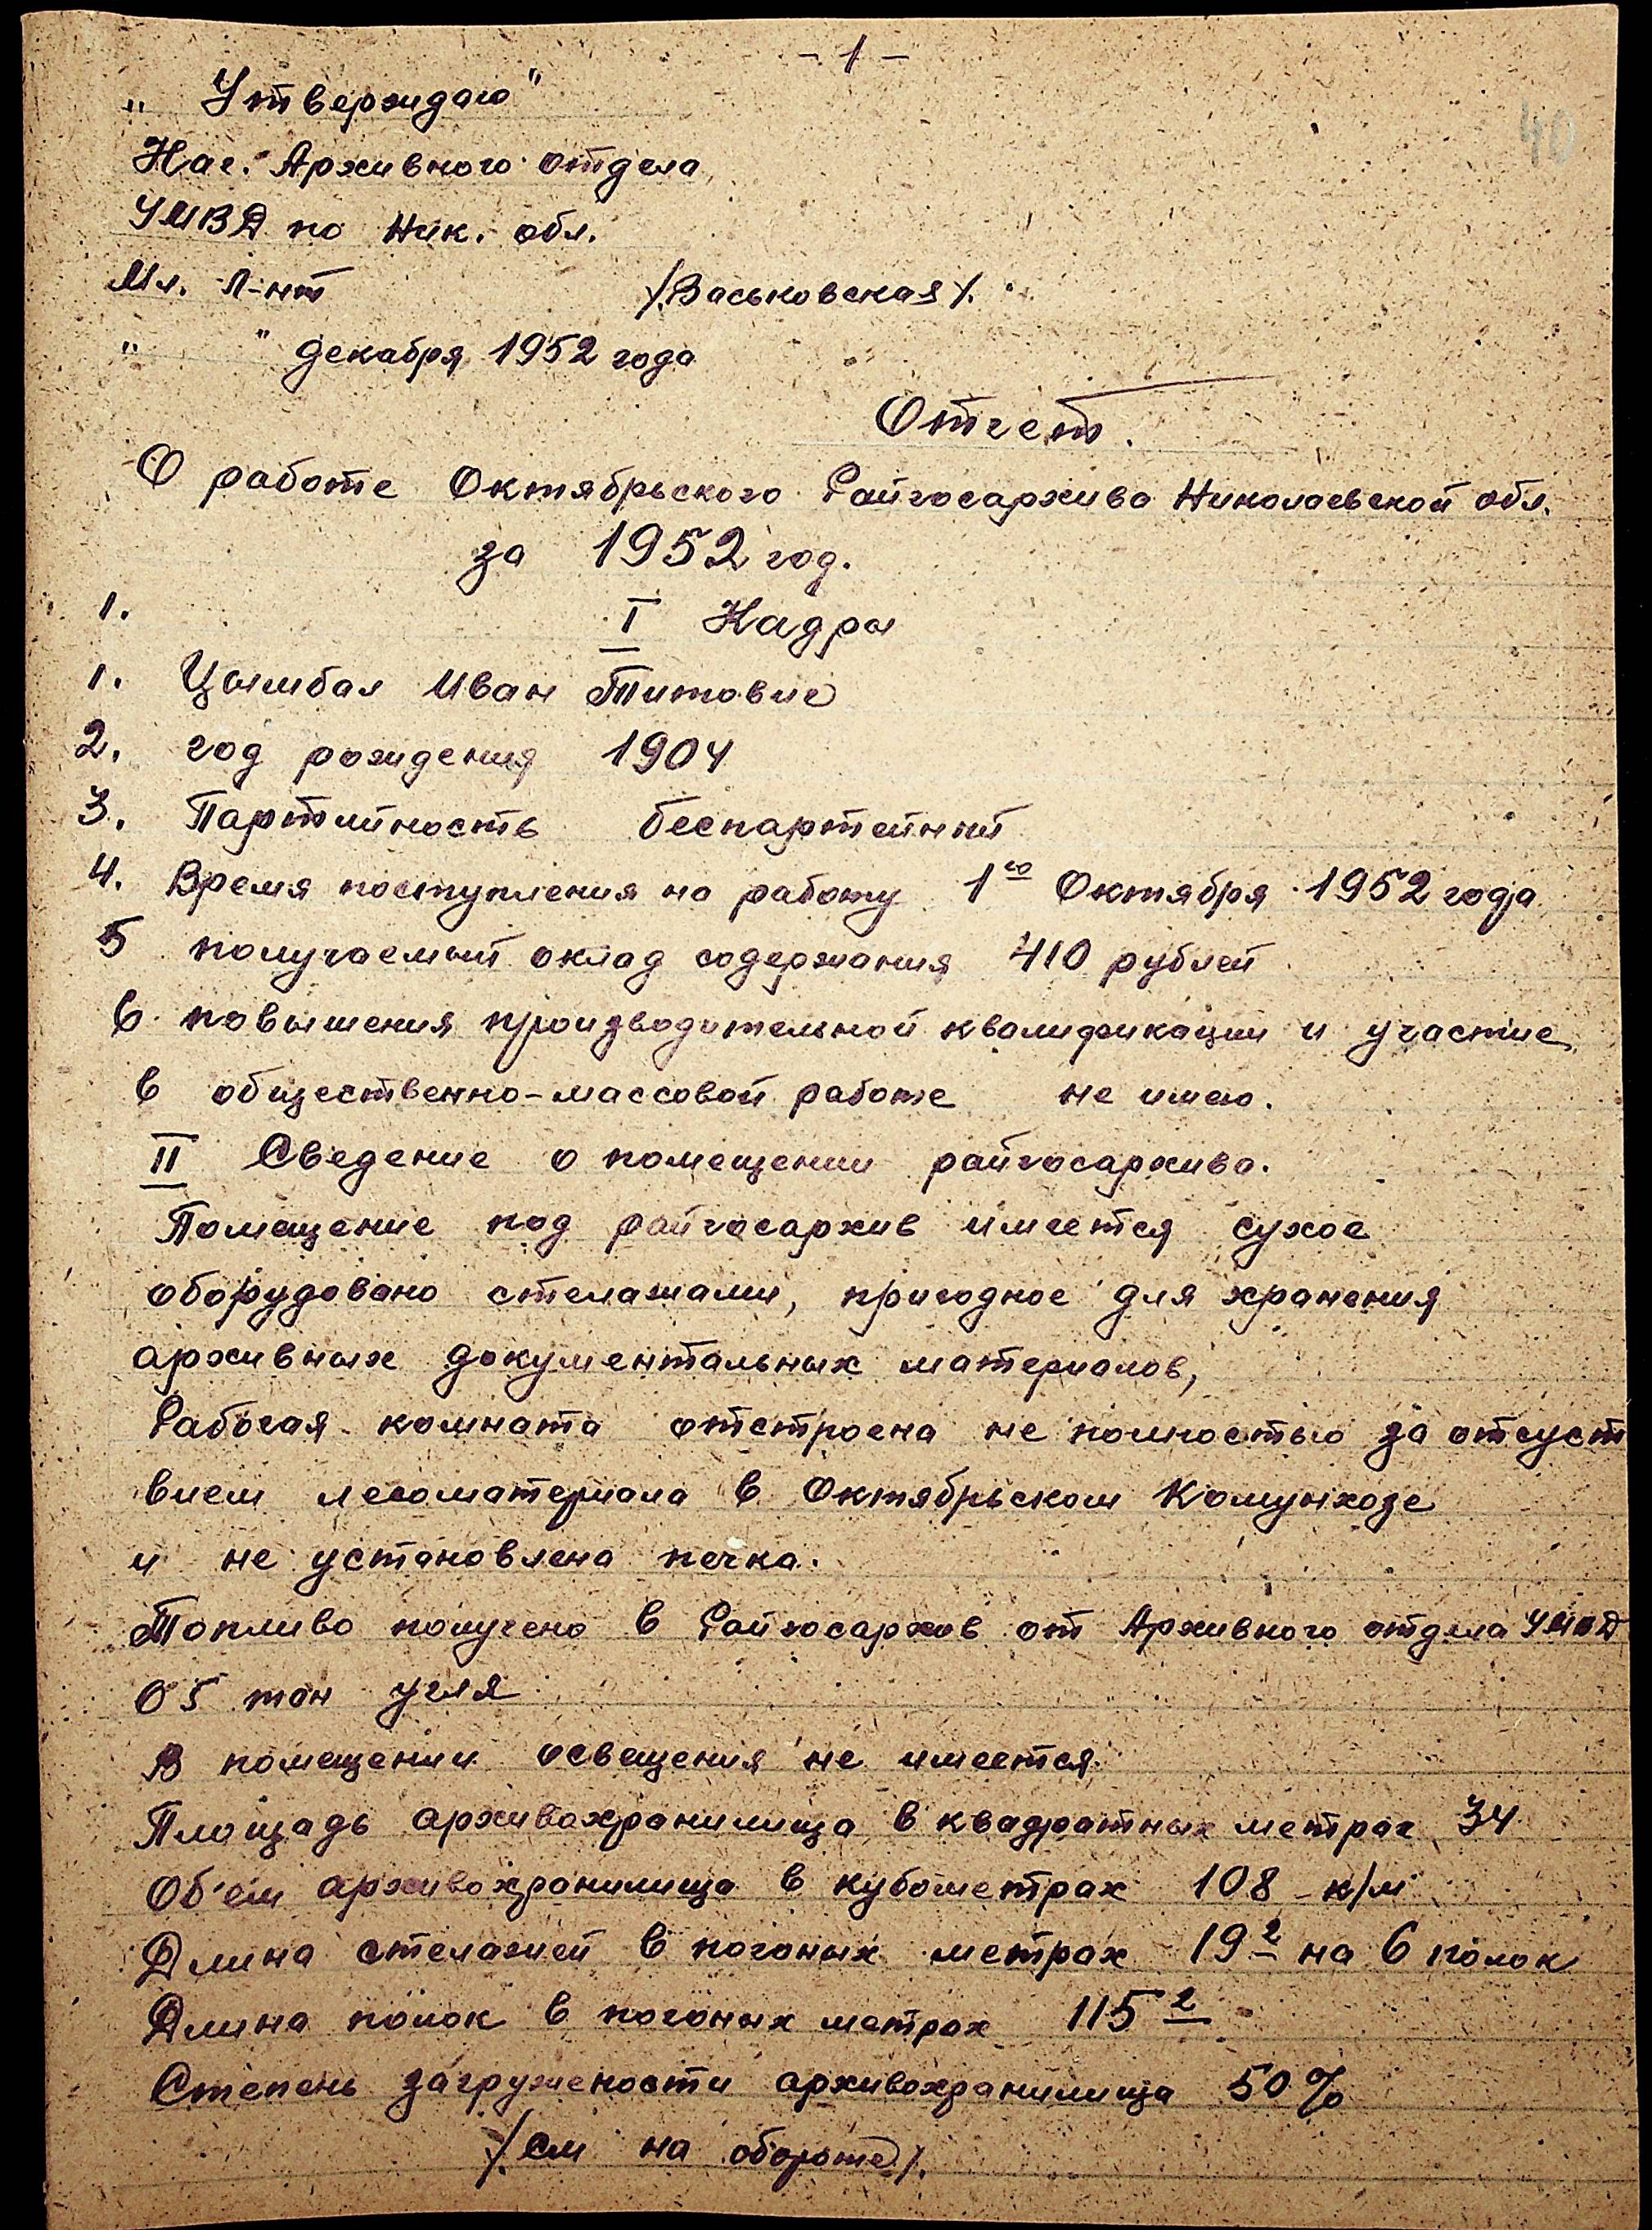 - 1 -
40
„ Утверждаю"
Нач. Архивного отдела
УМВД по Ник. обл.
Мл. Л-нт /Васьковская/.
" " декабря 1952 года
Отчет.
О работе Октябрьского Райгосархива Николаевской обл.
за 1952 год.
1. I Кадры
1. Цымбал Иван Титович
2. год рождения 1904
3. Партийность беспартейный
4. Время поступления на работу 1го Октября 1952 года
5 получаемый оклад содержания 410 рублей
6. повышения производительной квалификации и участие
в общественно-массовой работе не имею.
II Сведение о помещении райгосархива.
Помещение под райгосархив имеется сухое
оборудовано стелажами, пригодное для хранения
архивных документальных материалов,
Рабочая комната отстроена не полностью за отсуст
вием лесоматериала в Октябрьском Комунхозе
и не установлена печка.
Топливо получено в Райгосархив от Архивного отдела УМВД
05 тон угля
В помещении освещения не имеется.
Площадь архивохранилища в квадратных метрах 34
Об'ем архивохранилища в кубометрах 108 к/м
Длина стелажей в погоных метрах 19² на 6 полок
Длина полок в погоных метрах 115²
Степень загружености архивохранилища 50%
/см на обороте/.